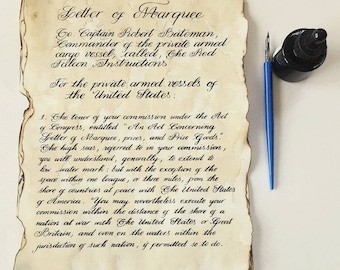 Letter of Marquee
To Captain Robert Bateman,
Commander of the private armed
cargo vessel, called, The Red
Falcon, Instructions
For the private armed vessels of
the United States:
1. The tenor of your commission under the Act
of Congress, entitled "An Act Concerning
Letter of Marquee, prizes, and Prize Goods".
The high seas, referred to in your commission,
you will understand, generally, to extend to
low water mark; but with the exception of the
space within one league, or three miles, from the
shore of countries at peace with The United States
of America. You may nevertheless execute your
commission within the distance of the shore of a
nation at war with The United States or Great
Britain, and even on the waters within the
jurisdiction of such nation, if permitted so to do.